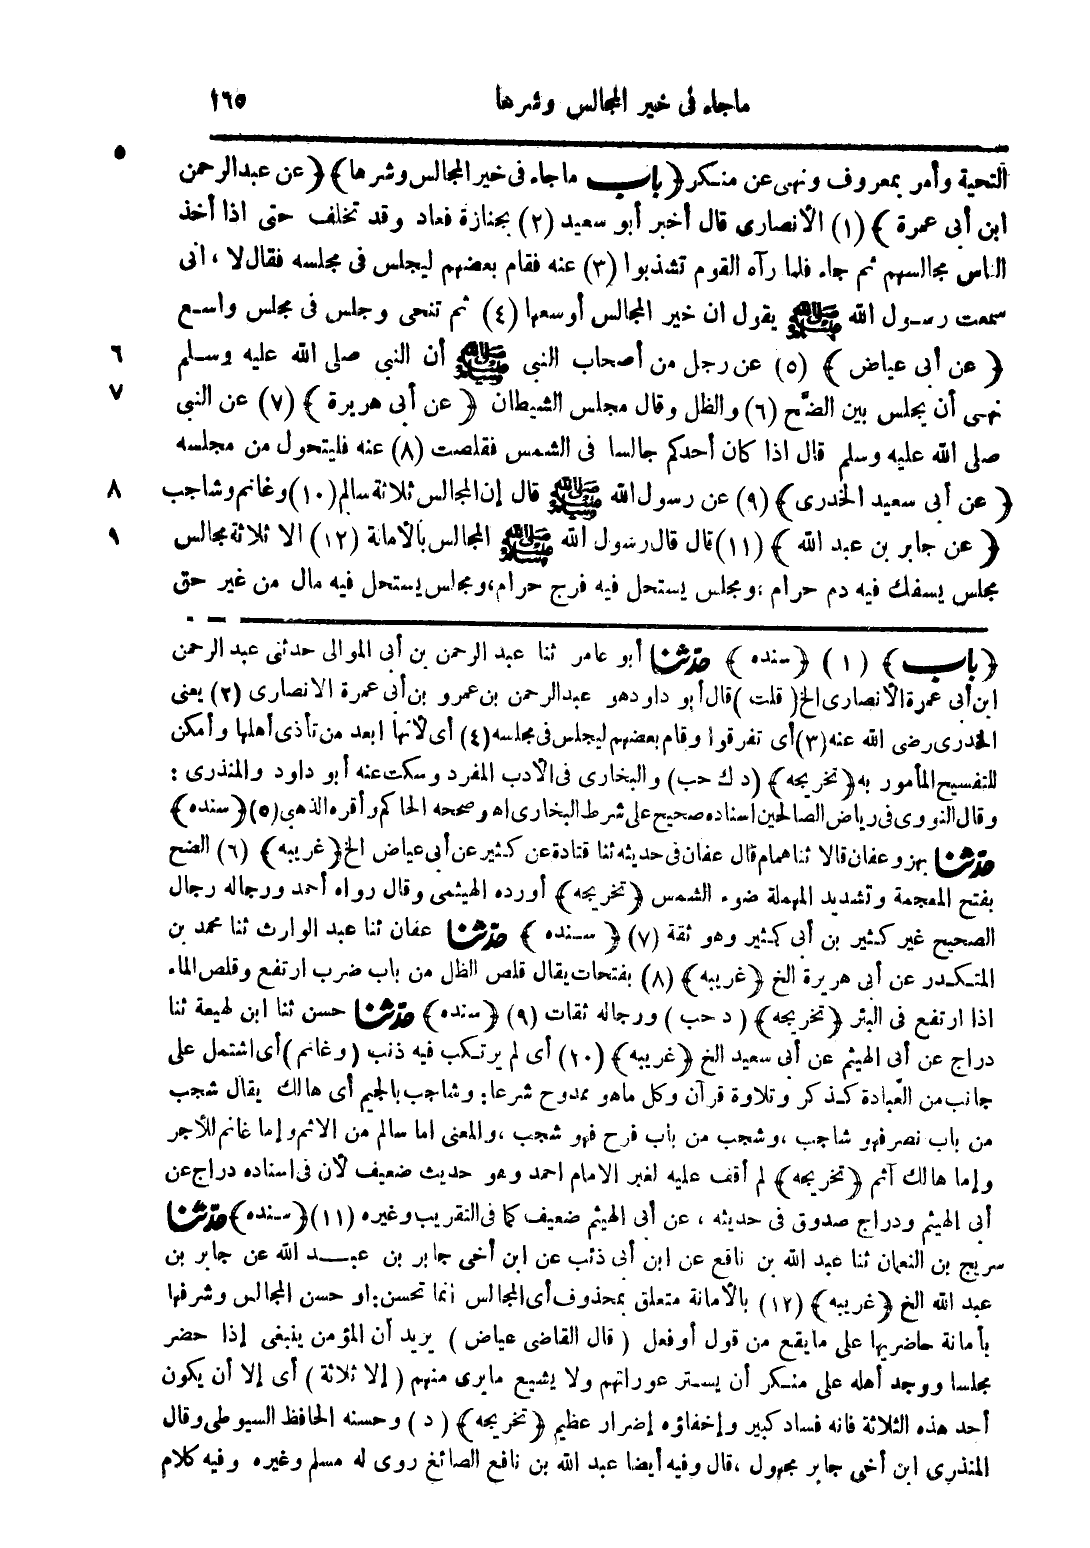 ماجاء فى خير المجالس وشرها ١٦٥
التحية وأمر بمعروف ونهى عن منكر ﴿باب ماجاء فى خير المجالس وشرها﴾ ﴿عن عبد الرحمن ٥
ابن أبى عمرة﴾ (١) الأنصارى قال أخبر أبو سعيد (٢) بجنازة فعاد وقد تخلف حتى اذا أخذ
الناس مجالسهم ثم جاء فلما رآه القوم تشذبوا (٣) عنه فقام بعضهم ليجلس فى مجلسه فقال لا ، انى
سمعت رسول الله ﷺ يقول ان خير المجالس أوسعها (٤) ثم تنحى وجلس فى مجلس واسع
﴿عن أبى عياض﴾ (٥) عن رجل من أصحاب النبى ﷺ أن النبى صلى الله عليه وسلم ٦
نهى أن يجلس بين الضَّح (٦) والظل وقال مجلس الشيطان ﴿عن أبى هريرة﴾ (٧) عن النبى ٧
صلى الله عليه وسلم قال اذا كان أحدكم جالسا فى الشمس فقلصت (٨) عنه فليتحول من مجلسه
﴿عن أبى سعيد الخدرى﴾ (٩) عن رسول الله ﷺ قال إن المجالس ثلاثة سالم (١٠) وغانم وشاجب ٨
﴿عن جابر بن عبد الله﴾ (١١) قال قال رسول الله ﷺ المجالس بالأمانة (١٢) الا ثلاثة مجالس ٩
مجلس يسفك فيه دم حرام ، ومجلس يستحل فيه فرج حرام ، ومجلس يستحل فيه مال من غير حق
﴿باب﴾ (١) ﴿سنده﴾ حدثنا أبو عامر ثنا عبد الرحمن بن أبى الموالى حدثنى عبد الرحمن
ابن أبى عمرة الأنصارى الخ (قلت) قال أبو داود هو عبد الرحمن بن عمرو بن أبى عمرة الانصارى (٢) يعنى
الخدرى رضى الله عنه (٣) أى تفرقوا وقام بعضهم ليجلس فى مجلسه (٤) أى لأنها ابعد من تأذى أهلها وأمكن
للتفسيح المأمور به ﴿تخريجه﴾ (د ك حب) والبخارى فى الأدب المفرد وسكت عنه أبو داود والمنذرى :
وقال النووى فى رياض الصالحين اسناده صحيح على شرط البخارى اه وصححه الحاكم وأقره الذهبى (٥) ﴿سنده﴾
حدثنا بهز وعفان قالا ثنا همام قال عفان فى حديثه ثنا قتادة عن كثير عن أبى عياض الخ ﴿غريبه﴾ (٦) الضح
بفتح المعجمة وتشديد المهملة ضوء الشمس ﴿تخريجه﴾ أورده الهيثمى وقال رواه أحمد ورجاله رجال
الصحيح غير كثير بن أبى كثير وهو ثقة (٧) ﴿سنده﴾ حدثنا عفان ثنا عبد الوارث ثنا محمد بن
المنكدر عن أبى هريرة الخ ﴿غريبه﴾ (٨) بفتحات يقال قلص الظل من باب ضرب ارتفع وقلص الماء
اذا ارتفع فى البئر ﴿تخريجه﴾ (د حب) ورجاله ثقات (٩) ﴿سنده﴾ حدثنا حسن ثنا ابن لهيعة ثنا
دراج عن أبى الهيثم عن أبى سعيد الخ ﴿غريبه﴾ (١٠) أى لم يرتكب فيه ذنب (وغانم) أى اشتمل على
جانب من العبادة كذكر وتلاوة قرآن وكل ماهو ممدوح شرعا : وشاجب بالجيم أى هالك يقال شجب
من باب نصر فهو شاجب ، وشجب من باب فرح فهو شجب ، والمعنى اما سالم من الاثم وإما غانم للأجر
وإما هالك آثم ﴿تخريجه﴾ لم أقف عليه لغير الامام احمد وهو حديث ضعيف لأن فى اسناده دراج عن
أبى الهيثم ودراج صدوق فى حديثه ، عن أبى الهيثم ضعيف كما فى التقريب وغيره (١١) ﴿سنده﴾ حدثنا
سريج بن النعمان ثنا عبد الله بن نافع عن ابن أبى ذئب عن ابن أخى جابر بن عبد الله عن جابر بن
عبد الله الخ ﴿غريبه﴾ (١٢) بالأمانة متعلق بمحذوف أى المجالس انما تحسن : او حسن المجالس وشرفها
بأمانة حاضريها على مايقع من قول أو فعل (قال القاضى عياض) يريد أن المؤمن ينبغى إذا حضر
مجلسا ووجد أهله على منكر أن يستر عوراتهم ولا يشيع مايرى منهم (إلا ثلاثة) أى إلا أن يكون
أحد هذه الثلاثة فانه فساد كبير وإخفاؤه إضرار عظيم ﴿تخريجه﴾ (د) وحسنه الحافظ السيوطى وقال
المنذرى ابن أخى جابر مجهول ، قال وفيه أيضا عبد الله بن نافع الصائغ روى له مسلم وغيره وفيه كلام